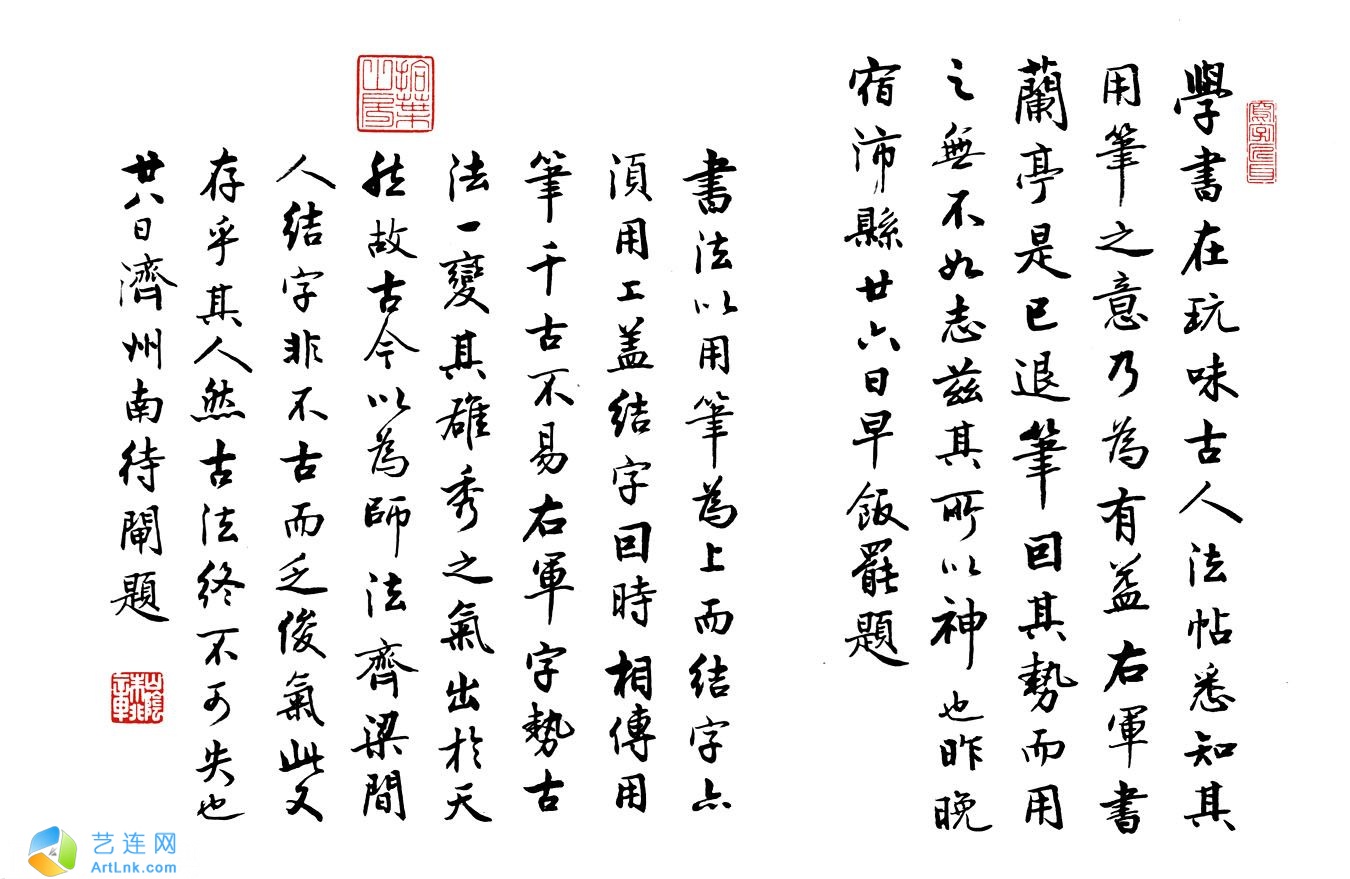 學書在玩味古人法帖悉知其
用筆之意乃為有益右軍書
蘭亭是已退筆囙其勢而用
之無不如志茲其所以神也昨晚
宿沛縣廿六日早飯罷題
書法以用筆為上而結字亦
須用工盖結字囙時相傳用
筆千古不易右軍字勢古
法一變其雄秀之氣出於天
然故古今以為師法齊梁間
人結字非不古而乏俊氣此又
存乎其人然古法終不可失也
廿八日濟州南待閘題
拾葉山房
艺连网
ArtLnk.com